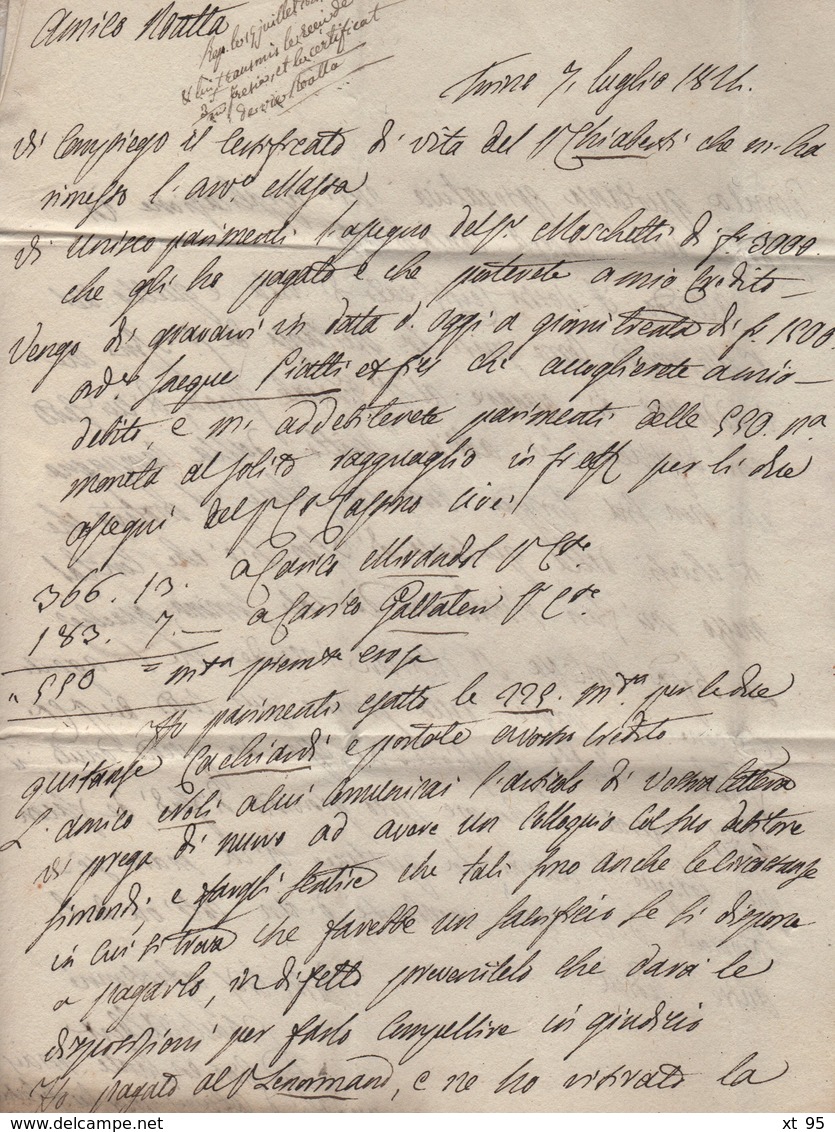 Amico Noatta
Rep. le 19 juillet
& lui transmis le
et le certificat
de vie Noatta
Torino 7. luglio 1824.
Vi Compiego il Certificato di vita del Sr. Chiaberti che m'ha
rimesso l'avvo. Massa
Vi Unisco parimenti l'assegno del Sr. Moschetti di fr. 3000.
che gli ho pagato e che porterete a mio Credito —
Vengo di gravarvi in data d'oggi a giorni trenta di fr. 1500
orde. Jacque Piatti et fils che accoglierete a mio —
debito, e mi addebiterete parimenti delle 550. pa.
moneta al solito ragguaglio in per li due
assegni del Sr. Cr. Cassino cioè
366. 13. a Carico Sr. Cte.
183. 7. — a Carico Gallateri Sr. Cte.
" 550 = mta
Ho parimenti esatto le 225. mta. per le due
quitanze Cachiardi e portate a vostro Credito
L'amico Noli a cui Comunicai l'articolo di vostra lettera
vi prega di nuovo ad avere un Colloquio Col suo debitore
Simondi, e fargli sentire che tali sono anche le Circostanze
in Cui si trova che farebbe un Sacrificio se si dispone
a pagarlo, in difetto prevenitelo che darà le
disposizioni per farlo Compellire in giudicio
Ho pagato al Sr. Lenormand, e ne ho ritirato la
xt 95